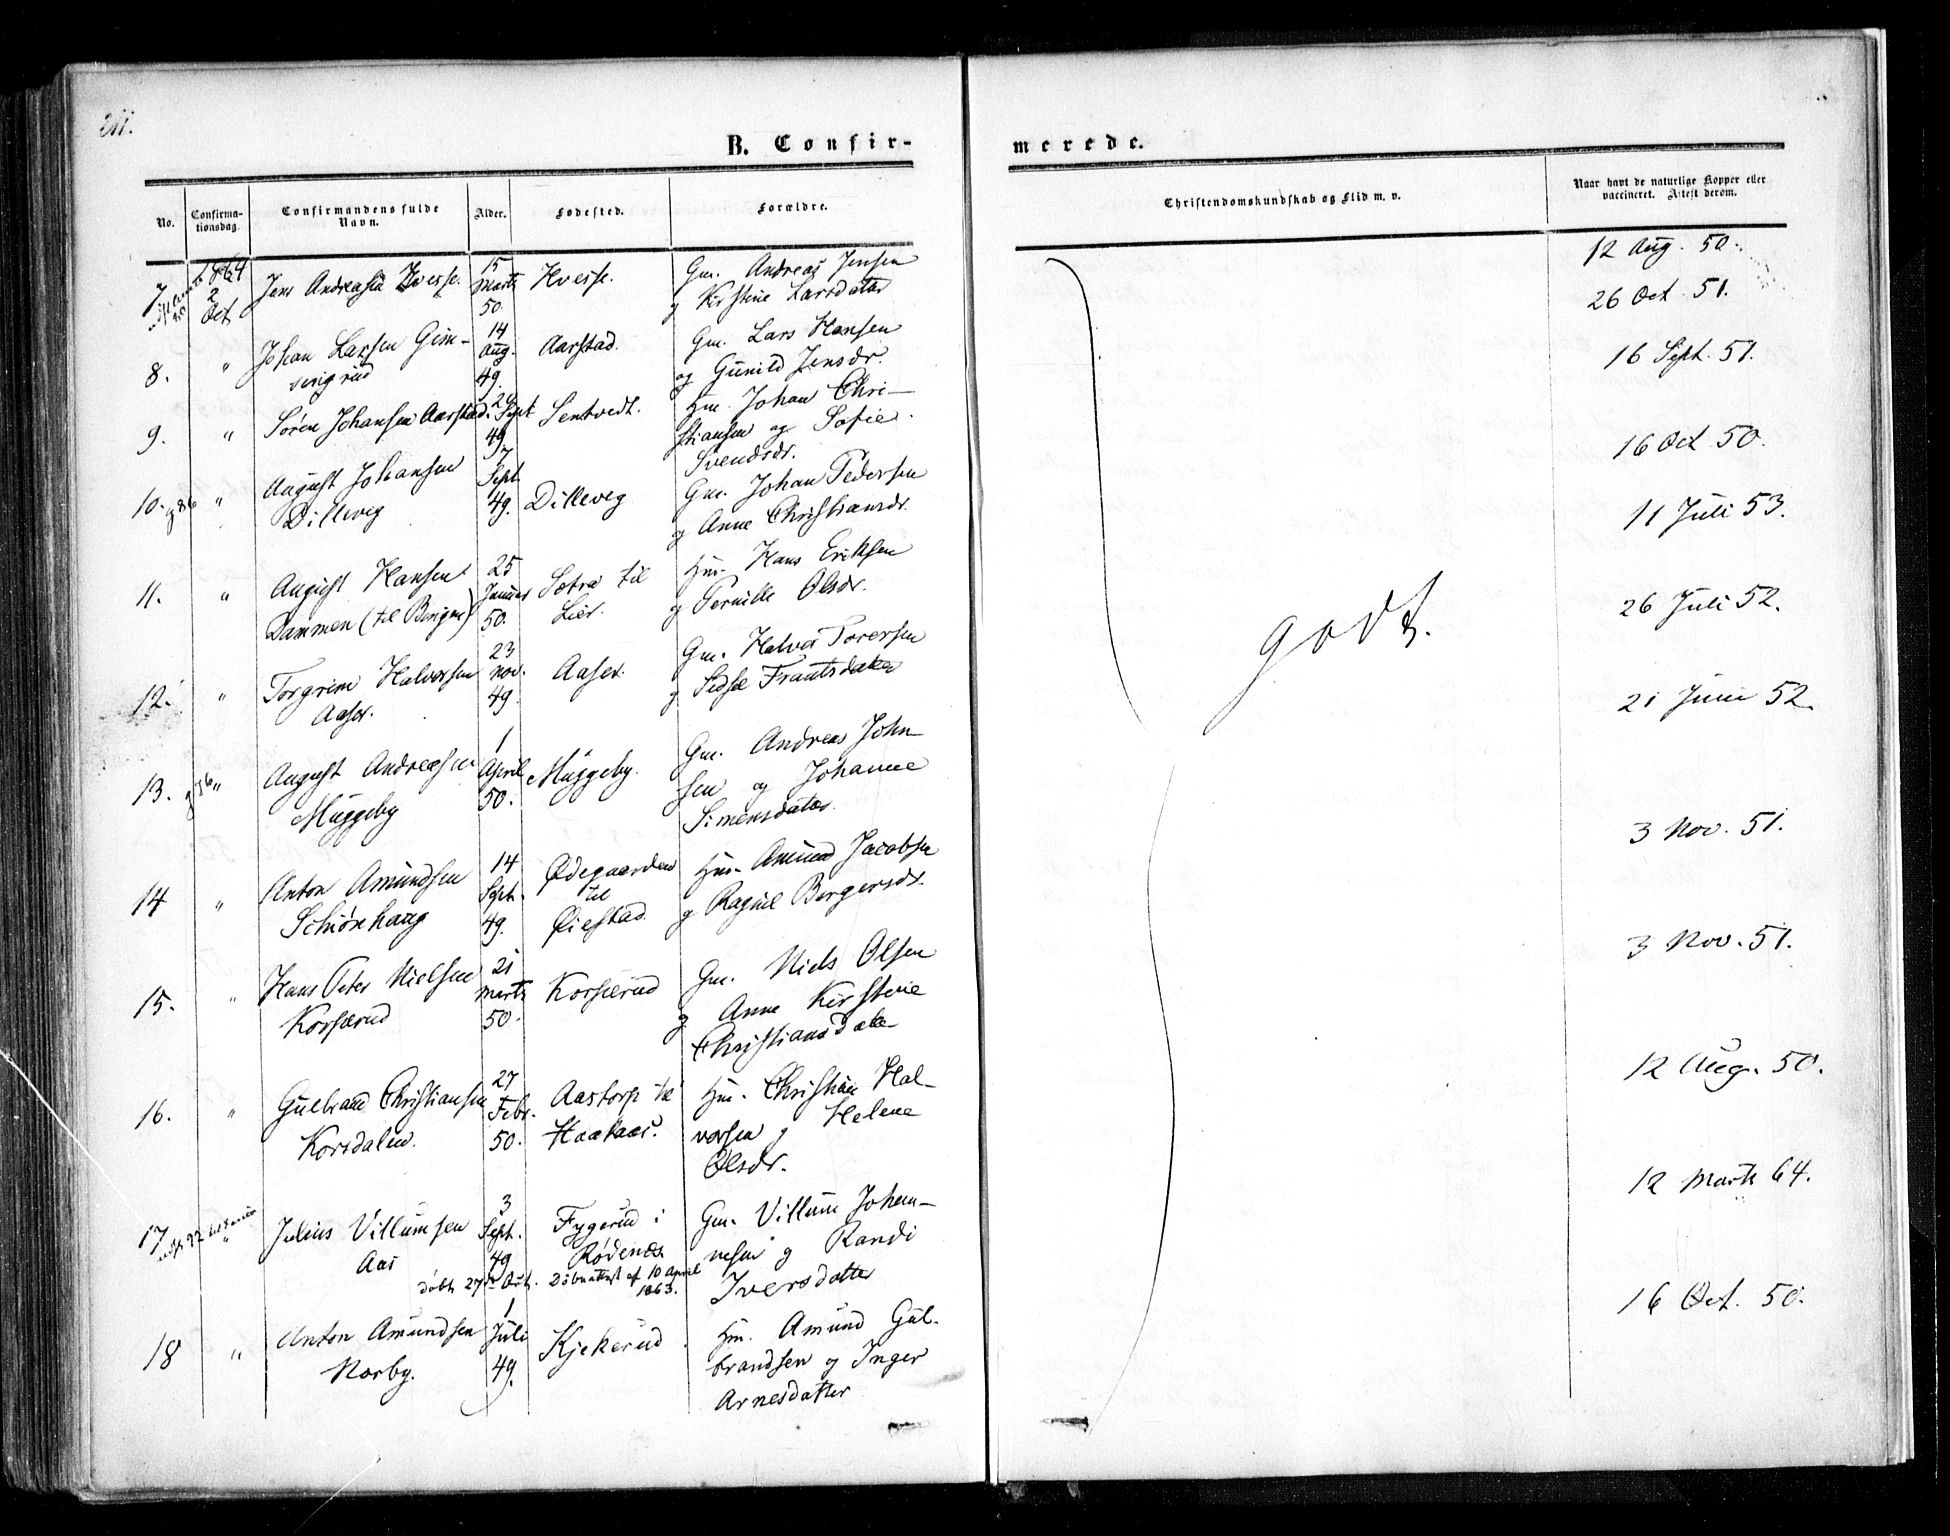 B. Confir-
merede.
No.
Confirma-
tionsdag.
Confirmandens fulde
Navn.
Alder.
Fødested.
Forældre.
Christendomskundskab og Flid m. v.
Naar havt de naturlige Kopper eller
vaccineret. Attest derom.
7. 1864 2 Oct Jens Andreasen Hvesse. 15 Marts 50. Hvesse. Gm. Andreas Jensen
og Kirstine Larsdatter
12 Aug. 50.
8. " Johan Larsen Gim-
serigrud 14 Aug. 49. Aarstad. Gm. Lars Hansen
og Gunild Jensdr.
26 Oct. 51.
9. " Søren Johansen Aarstad. 29 Sept 49 Sentvedt. Hm. Johan Chri-
stiansen og Sofie
Svendsdr.
16 Sept. 51.
10. " August Johansen
Dillevig 7 Sept 49. Dilleveg Gm. Johan Pedersen
og Anne Christiansdr.
16 Oct 50.
11. " August Hansen
Dammen (til Bingen) 25 Januar 50. Sætra til
Lier. Hm. Hans Eriksen
og Pernille Olsdr.
11 Juli 53.
12. " Torgrim Halvorsen
Aaser. 23 Nov. 49. Aaser. Gm. Halvor Torersen
og Sidse Frantsdatter
26 Juli 52.
godt.
13. " August Andreasen
Muggeby 1 April 50. Muggeby. Gm. Andreas John-
sen og Johanne
Simensdatter.
21 Juni 52.
14 " Anton Amundsen
Schiønhaug 14 Sept. 49. Ødegaarden
til
Øiestad. Hm. Amund Jacobsen
og Ragnil Borgersdr.
3 Nov. 51.
15. " Hans Peter Nielsen
Korsærud 21 Marts 50. Korsærud Gm. Niels Olsen
og Anne Kirstine
Christiansdatter
3 Nov. 51.
16. " Gulbrand Christiansen
Korsdalen. 27 Febr. 50. Aastorp til
Haakaas. Hm. Christian Hal-
vorsen og Helene
Olsdr.
12 Aug. 50.
17 " Julius Villumsen
Aas 3 Sept. 49 Fygerud i
Rødenæs Gm. Villum Johan-
nesen og Randi
Iversdatter
døbt 27de Oct. Døbeattest af 10 April
1863.
12 Marts 64.
18 " Anton Amundsen
Norby. 1 Juli 49. Kjekerud Hm. Amund Gul-
brandsen og Inger
Arnesdatter
16 Oct. 50.